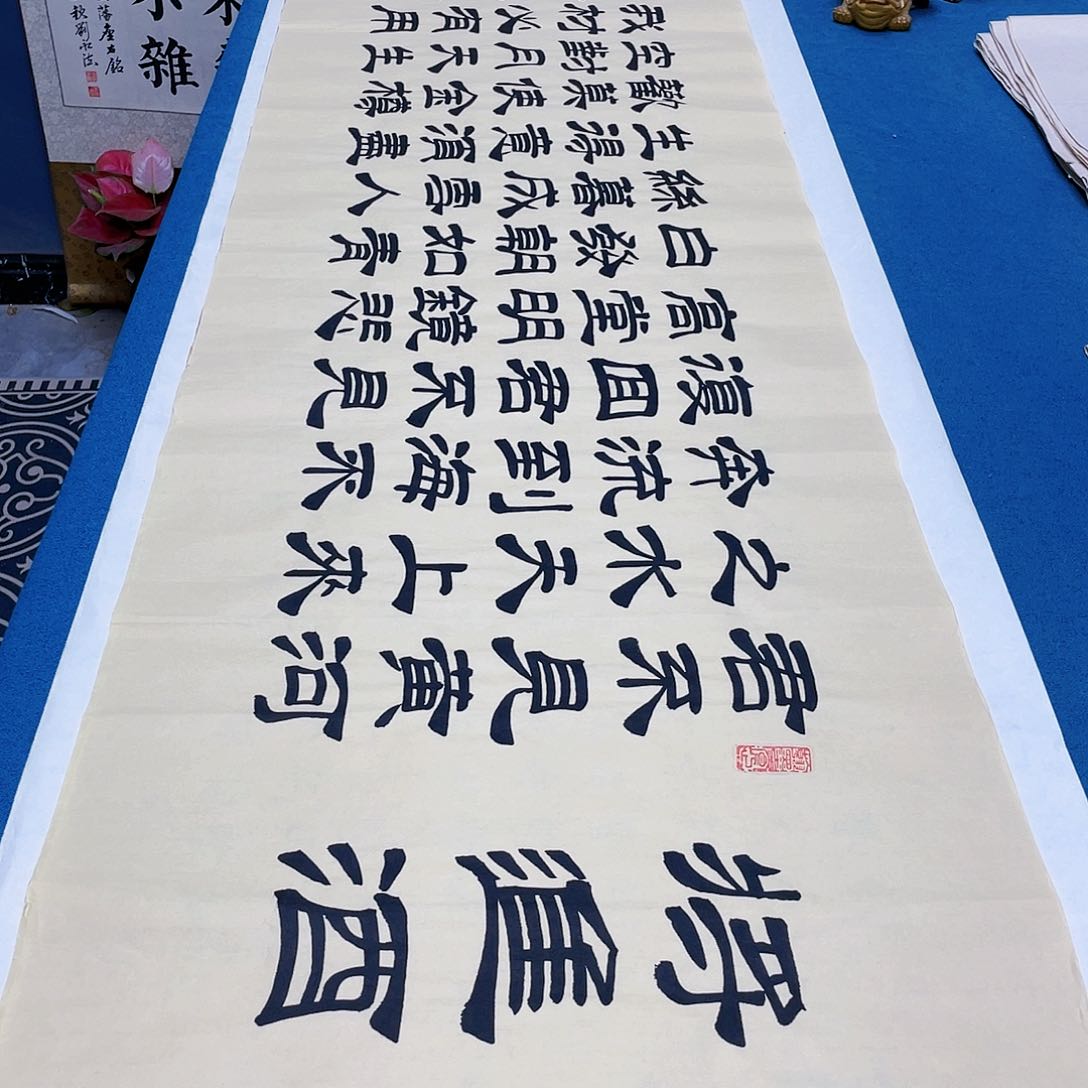 將進酒
君不見黄河
之水天上來
奔流到海不
復回君不見
高堂明鏡悲
白發朝如青
絲暮成雪人
生得意須盡
歡莫使金樽
空對月天生
我材必有用
雜